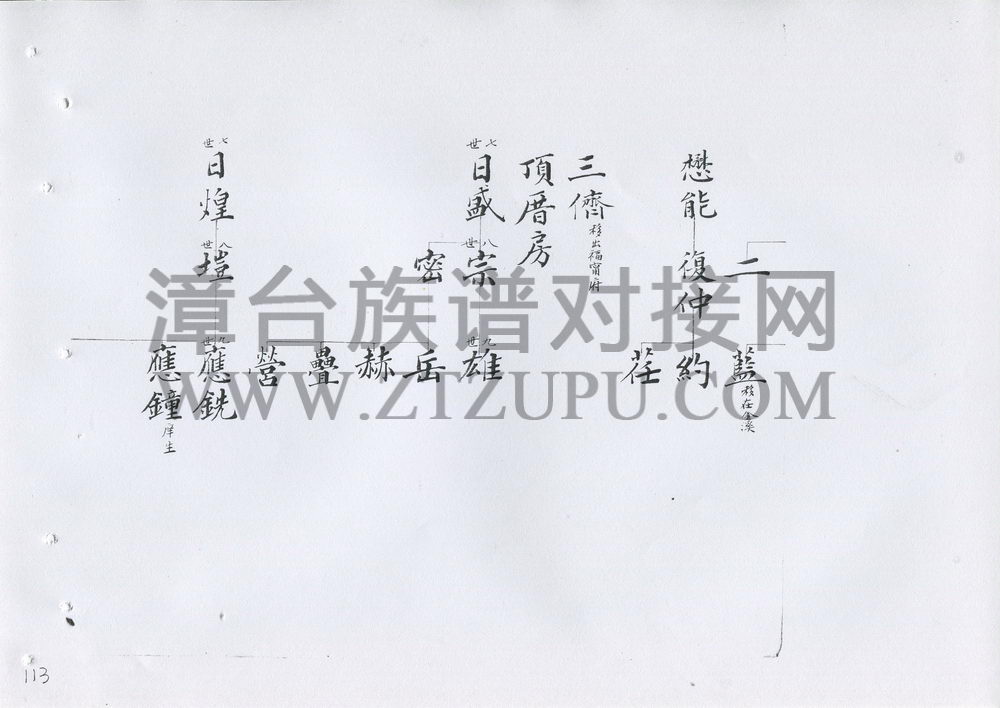 二
藍 移在金溪
懋能
復仲
約
荏
三儕 移出福甯府
頂厝房
七世
日盛
八世
宗
密
九世
雄
岳
赫
疊
營
七世
日煌
八世
塏
九世
應銑
應鐘 庠生
漳台族谱对接网
WWW.ZTZUPU.COM
113